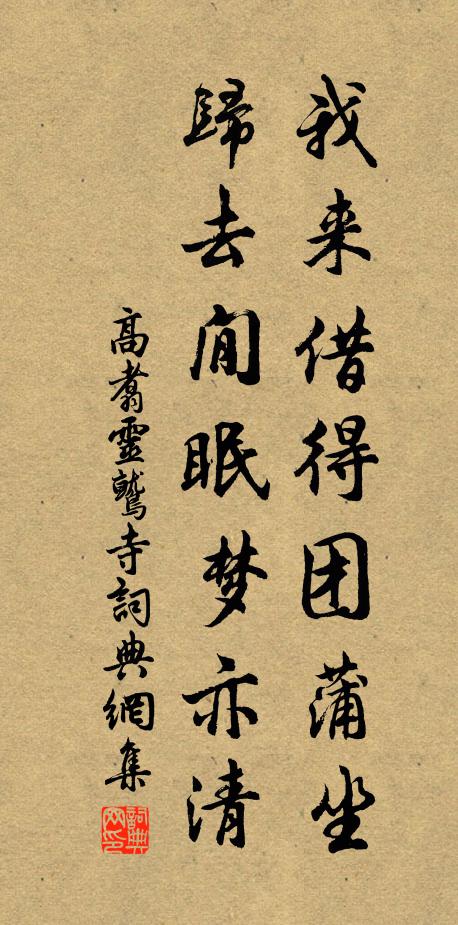 我来借得团蒲坐
歸去閒眠梦亦清
高翥靈鷲寺詞典網集
詞典网印